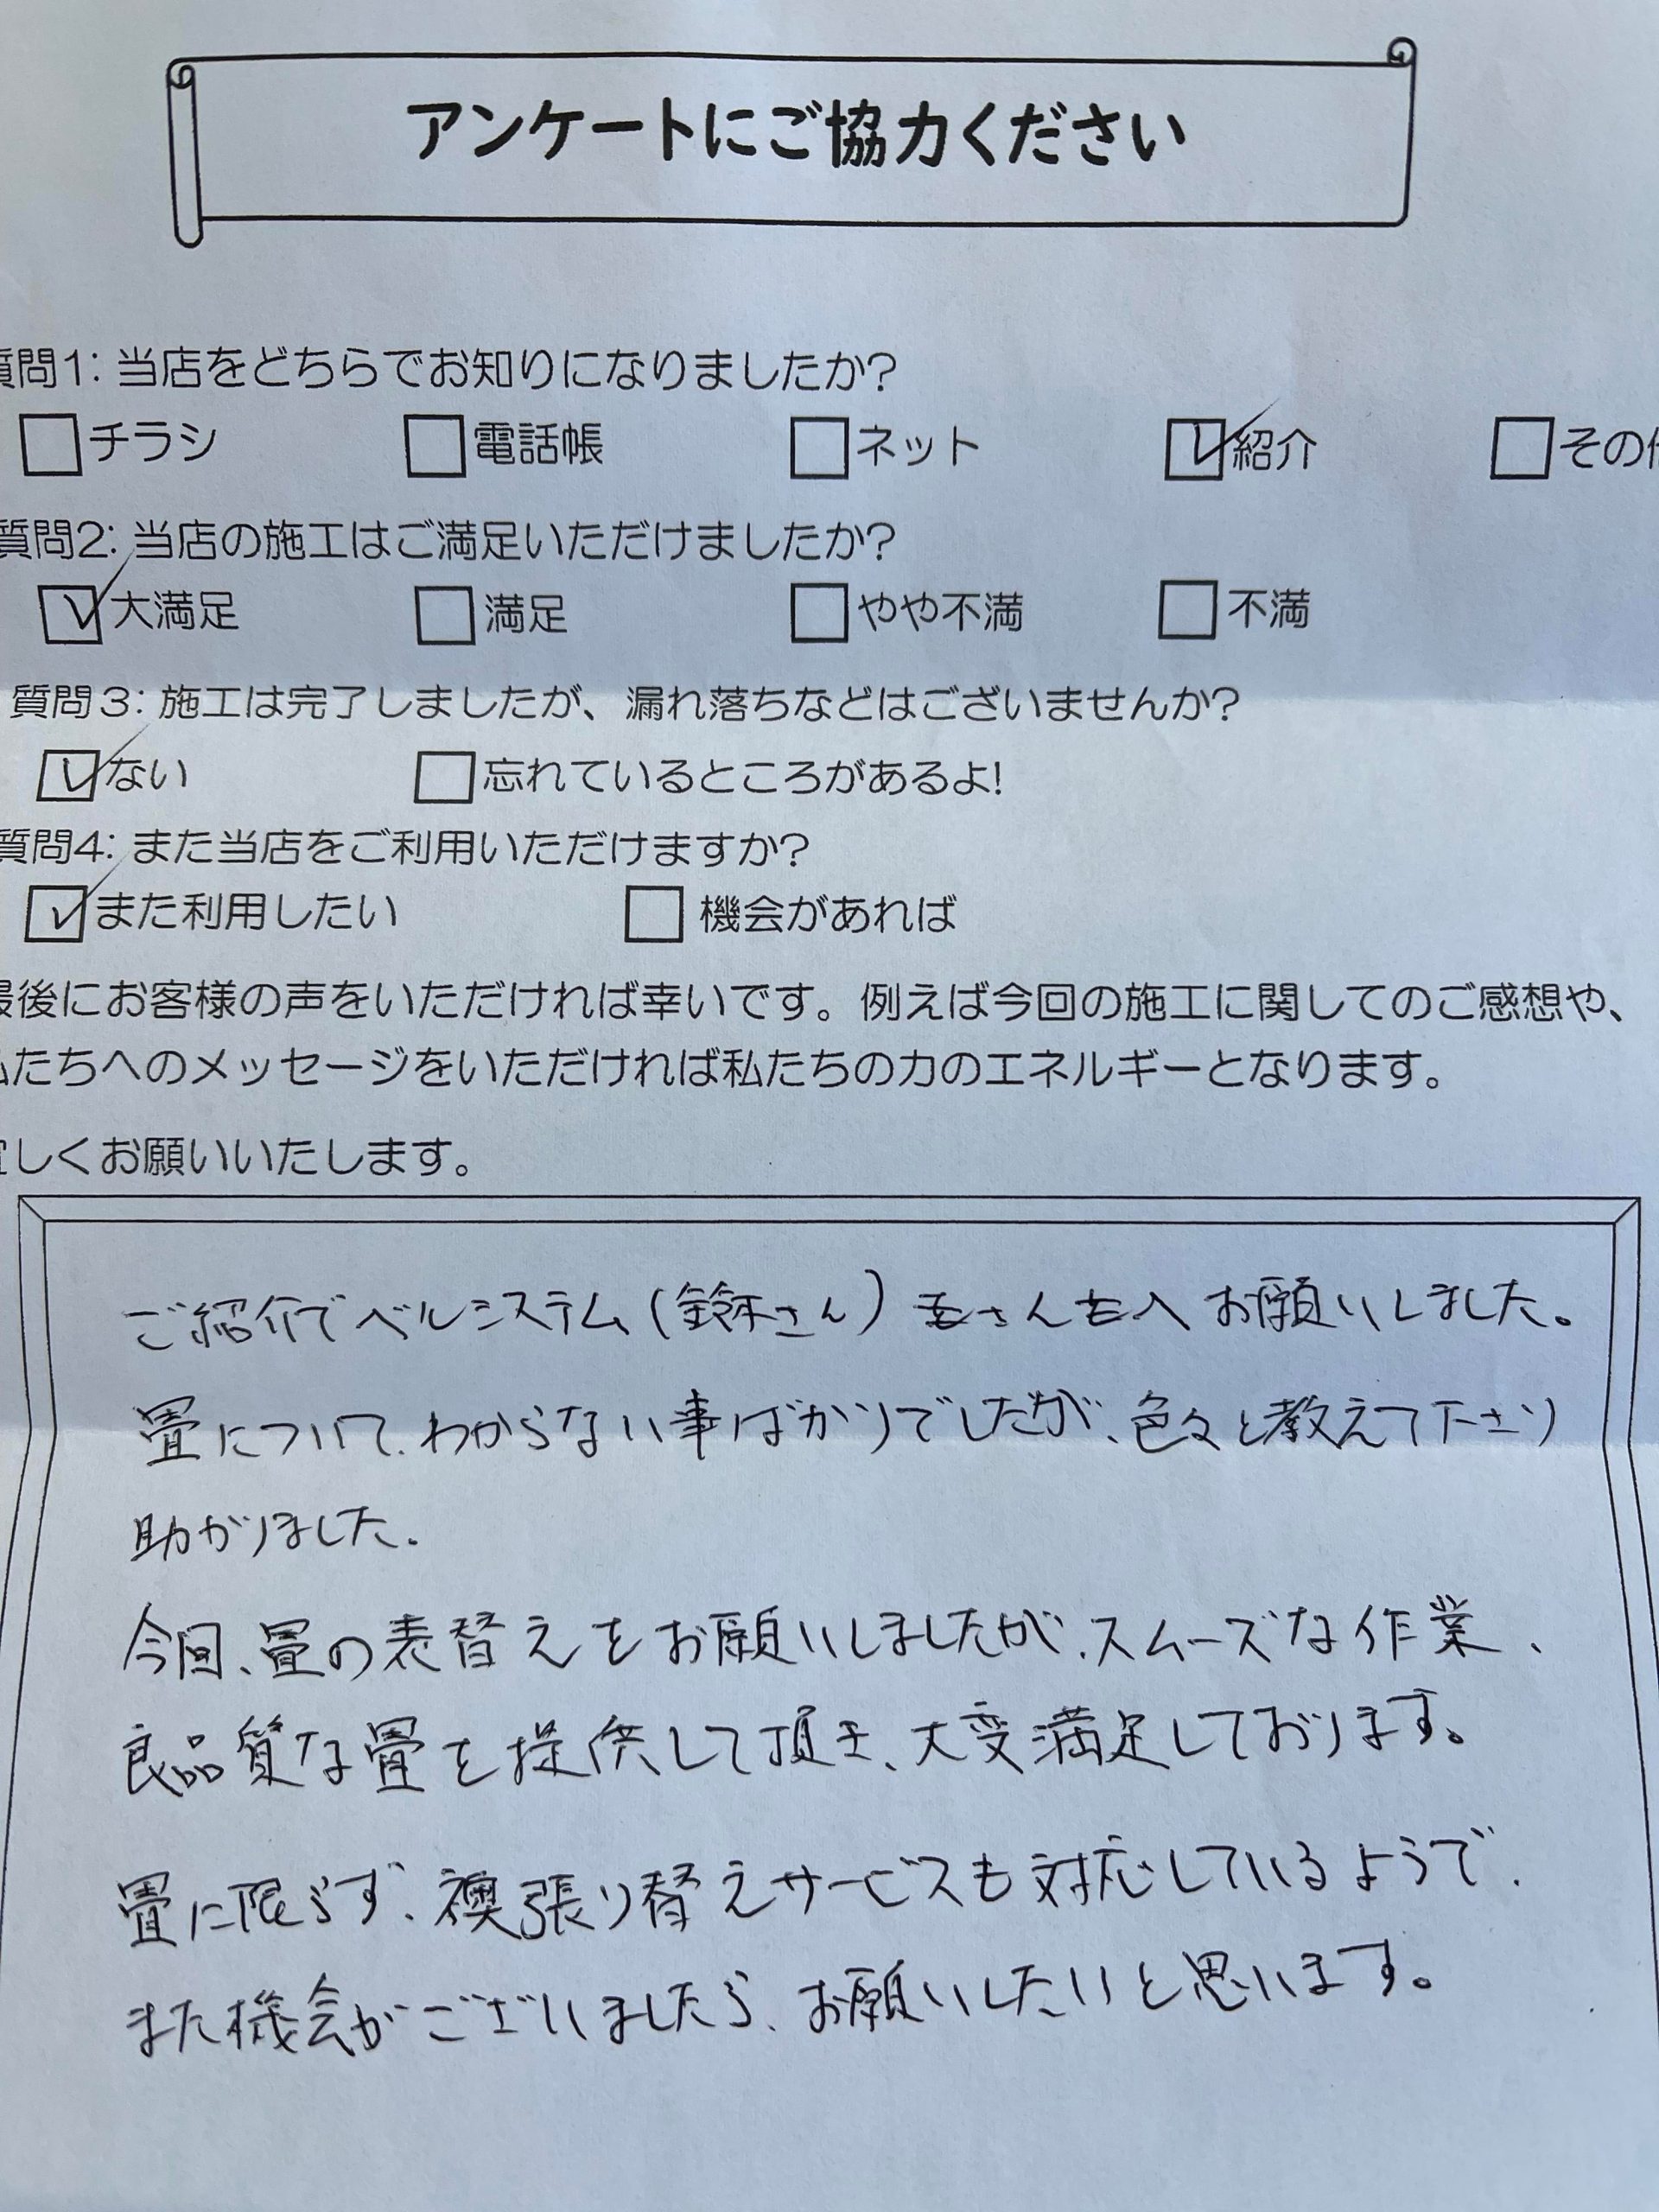 アンケートにご協力ください
質問1: 当店をどちらでお知りになりましたか?
チラシ 電話帳 ネット 紹介 その他
質問2: 当店の施工はご満足いただけましたか?
大満足 満足 やや不満 不満
質問3: 施工は完了しましたが、漏れ落ちなどはございませんか?
ない 忘れているところがあるよ!
質問4: また当店をご利用いただけますか?
また利用したい 機会があれば
最後にお客様の声をいただければ幸いです。例えば今回の施工に関してのご感想や、
私たちへのメッセージをいただければ私たちの力のエネルギーとなります。
宜しくお願いいたします。
ご紹介でベルシステム(鈴木さん) さん へお願いしました。
畳について、わからない事ばかりでしたが、色々と教えて下さり
助かりました。
今回、畳の表替えをお願いしましたが、スムーズな作業、
良品質な畳を提供して頂き、大変満足しております。
畳に限らず、襖張り替えサービスも対応しているようで、
また機会がございましたら、お願いしたいと思います。